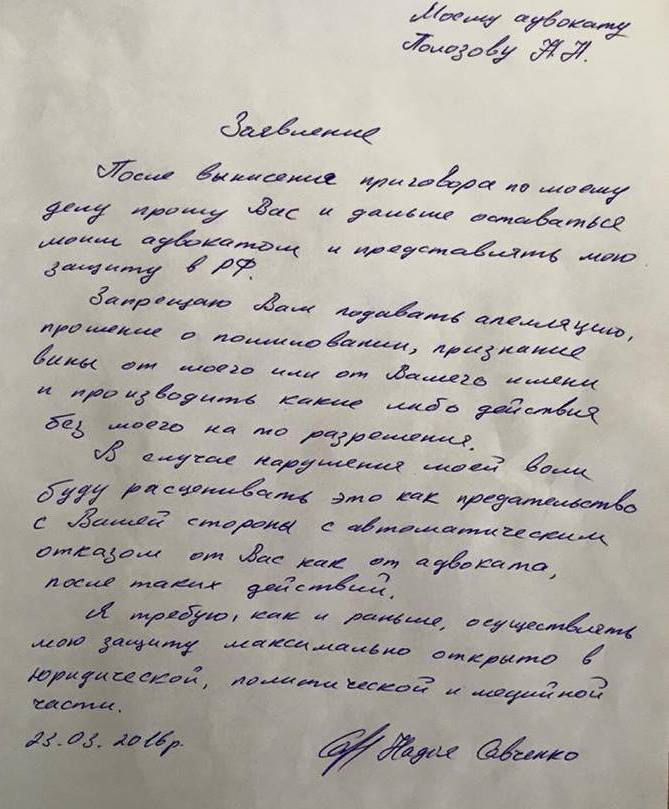 Моему адвокату
Полозову Н.Н.
Заявление
После вынисения приговора по моему
делу прошу Вас и дальше оставаться
моим адвокатом и представлять мою
защиту в РФ.
Запрещаю Вам подавать апелляцию,
прошение о помиловании, признание
вины от моего или от Вашего имени
и производить какие либо действия
без моего на то разрешения.
В случае нарушения моей воли
буду расценивать это как предательство
с Вашей стороны с автоматическим
отказом от Вас как от адвоката,
после таких действий.
Я требую, как и раньше, осуществлять
мою защиту максимально открыто в
юридической, политической и медийной
части.
23.03.2016р.
Надія Савченко